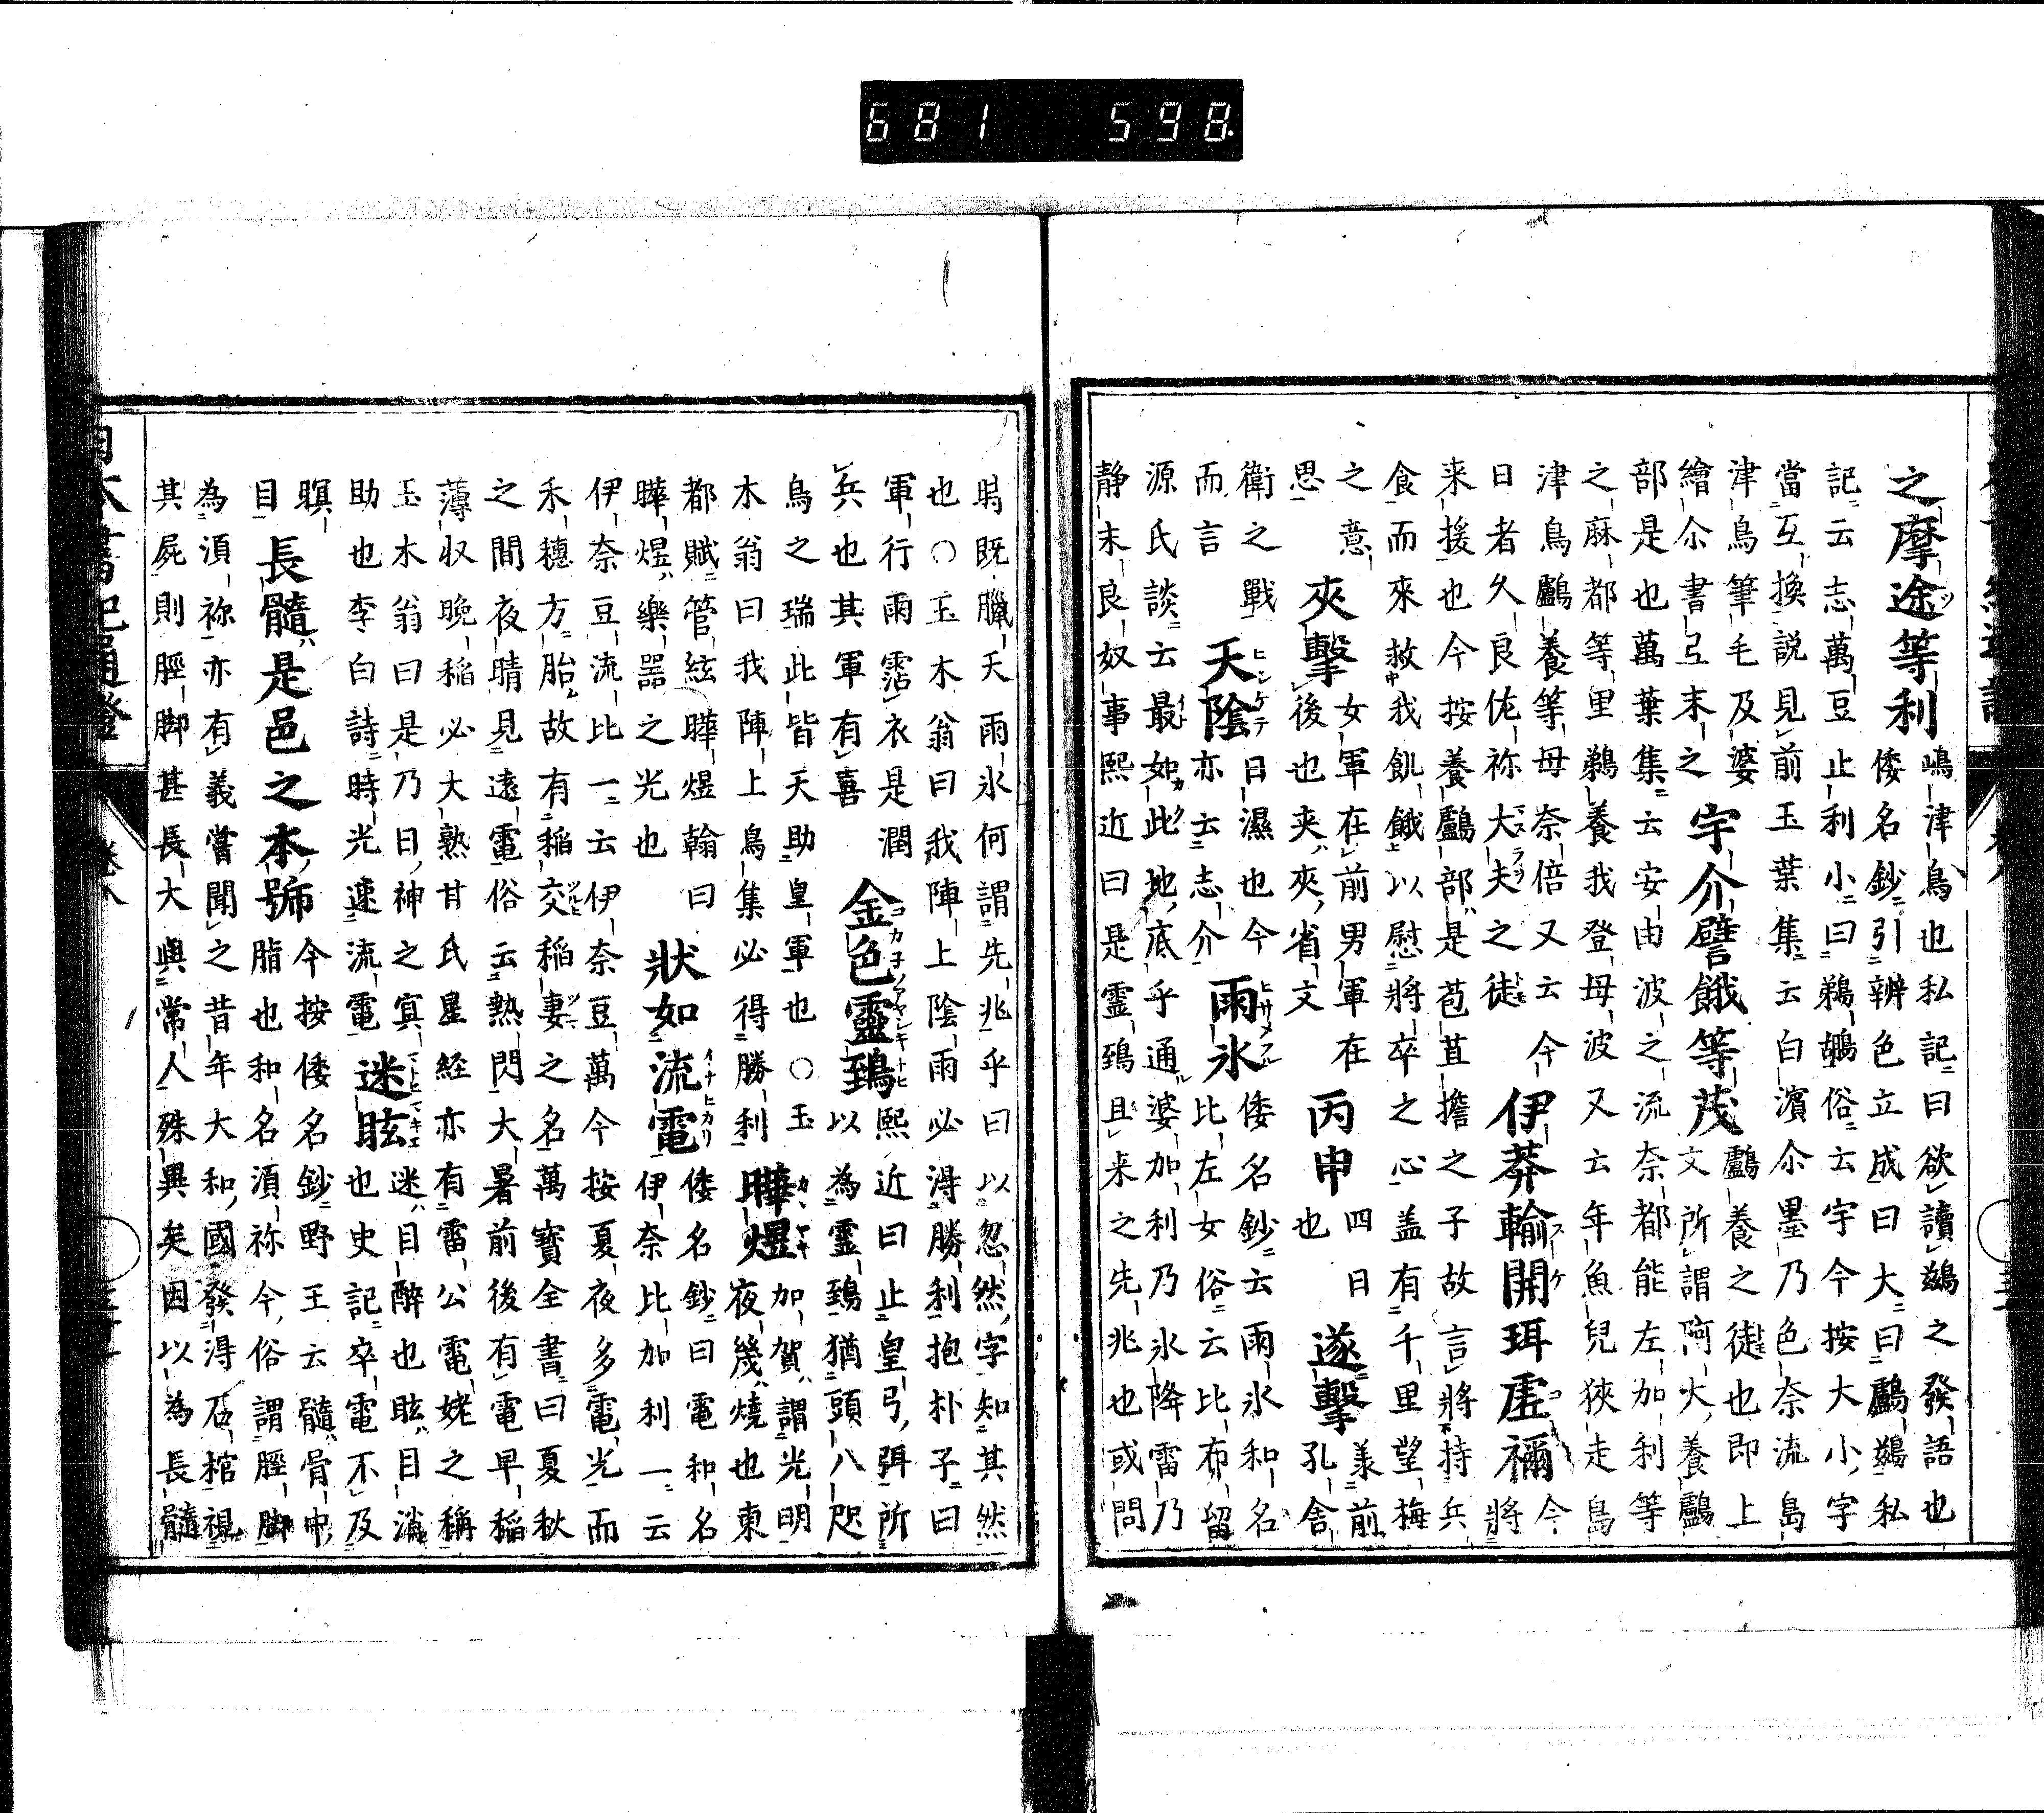 之摩途等利
嶋津鳥也私記曰欲讀鷀之發語也
倭名鈔引辨色立成曰大曰鸕鷀私
記云志萬豆止利小曰鵜鶘俗云宇今按大小字
當互換説見前玉葉集云白濱尒墨乃色奈流島
津鳥筆毛及婆
繪尒書弖末之
宇介譬餓等茂
鸕養之徒也即上
文所謂阿火養鸕
部是也萬葉集云安由波之流奈都能左加利等
之麻都等里鵜養我登母波又云年魚兒狹走島
津鳥鸕養等母奈倍又云今
日者久良佗祢大夫之徒
伊莽輸開珥虗禰
今
將
来援也今按養鸕部是苞苴擔之子故言將持兵
食而來救我飢餓以慰將卒之心盖有千里望梅
之意
思
夾擊
女軍在前男軍在
後也夾夾省文
丙申
四日
也
遂擊
前
孔舎
衛之戰
而言
天陰
日濕也今
亦云志介
雨氷
倭名鈔云雨氷和名
比左女俗云比布留
源氏談云最如此地底乎通婆加利乃氷降雷乃
静末良奴事熙近曰是靈鵄且来之先兆也或問
時既臘天雨氷何謂先兆乎曰以忽然字知其然
也○玉木翁曰我陣上陰雨必得勝利抱朴子曰
軍行雨霑衣是潤
兵也其軍有喜
金色靈鵄
熙近曰止皇弓弭所
以為靈鵄猶頭八咫
鳥之瑞此皆天助皇軍也○玉
木翁曰我陣上鳥集必得勝利
曄煜
加賀謂光明
夜幾燒也東
都賦管絃曄煜翰曰
曄煜樂器之光也
狀如流電
倭名鈔曰電和名
伊奈比加利一云
伊奈豆流比一云伊奈豆萬今按夏夜多電光而
禾穗方胎故有稲交稲妻之名萬寳全書曰夏秋
之間夜晴見遠電俗云熱閃大暑前後有電早稲
薄収晚稲必大熟甘氏星経亦有雷公電姥之稱
玉木翁曰是乃日神之冥
助也李白詩時光速流電
迷眩
迷目醉也眩目消
也史記卒電不及
瞑
目
長髓是邑之本號
今按倭名鈔野王云髓骨中
脂也和名湏祢今俗謂脛脚
為湏祢亦有義嘗聞之昔年大和國發得石棺視
其屍則脛脚甚長大與常人殊異矣因以為長髓
日本書紀通證
681 598